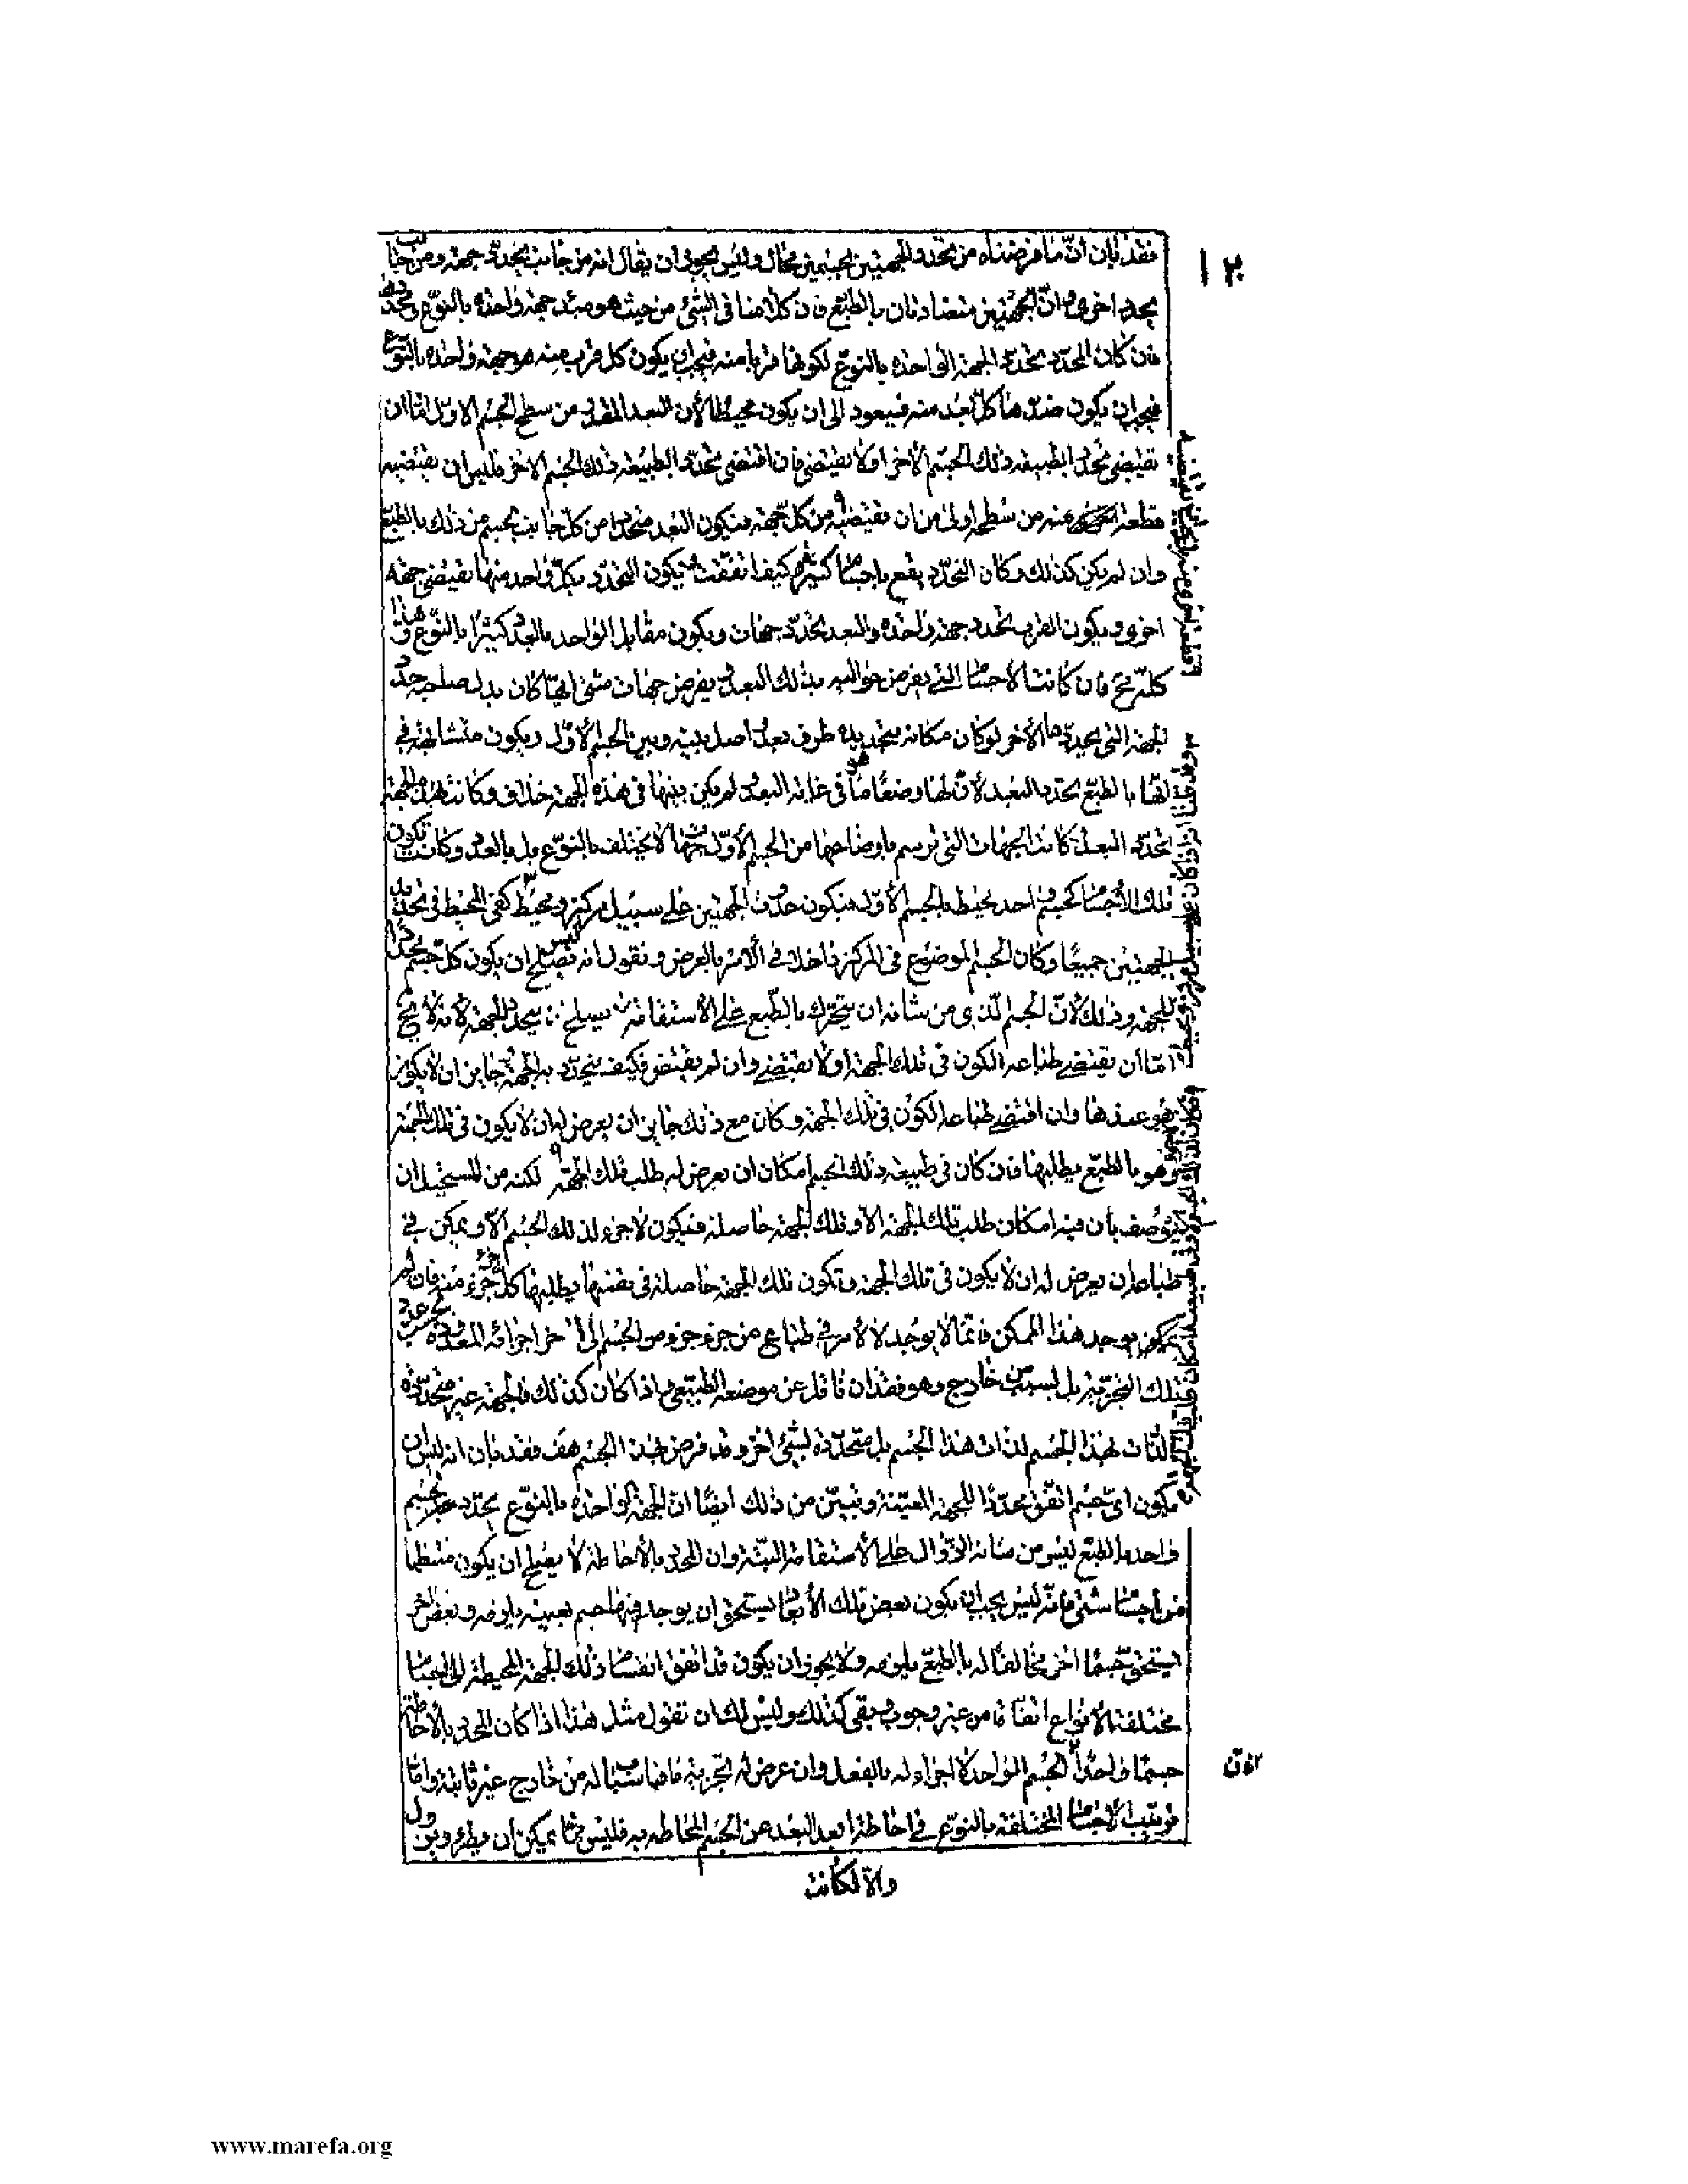 ١٢٠
فقد بان أنّ ما فرضناه من تحدد الجهتين بجسمين محال وليس يجوز ان يقال انه من جانب يحدد جهة ومن جانب
يحدد اخرى لأنّ الجهتين متضادتان بالطبع فان كلامنا في الشئ من حيث هو مبدء جهة واحدة بالنوع ومحدد
فان كان المحدد يحدد الجهة الواحدة بالنوع لكونها قربا منه فيجب ان يكون كل قرب منه هو جهة واحدة بالنوع
فيجب ان يكون ضدها كل بعد منه فيعود الى ان يكون محيطا لأن البعد المقدر من سطح الجسم الاول اما ان
يقتضى تحدده الطبيعة ذلك الجسم الأخر او لا يقتضى فان اقتضى تحدد الطبيعة ذلك الجسم الاخر فليس ان يقتضيه
قطعة عنه من سطحه اولى من ان يقتضيه من كل جهة فيكون البعد متحددا من كل جانب بجسم من ذلك بالطبع
وان لم يكن كذلك وكان التحدد يقع باجسام كثيرة كيف اتفقت فيكون التحدد بكل واحد منها يقتضى جهة
اخرى ويكون القرب يحدد جهة واحدة والبعد يحدد جهات ويكون مقابل الواحد بالعدد كثيرا بالنوع وهذا
كله مح فان كانت الأجسام التى يفرض حواليه بذلك البعد يفرض جهات شتى ايها كان بدل صاحبه حدد
الجهة التى يحددها الأخر لو كان مكانه يتحدد به طرف بعد اصل بينه وبين الجسم الأول ويكون متشابهة في
انها بالطبع تحدد البعد لأن لها وضعا ما هو في غاية البعد لم يكن بينها في هذه الجهة خلاف وكانت هذه الجهة
تحدد البعد كانت الجهات التى ترسم باوضاعها من الجسم الأول جهات لا يختلف بالنوع بل بالعدد وكانت تكون
تلك الأجسام كجسم واحد يحيط بالجسم الأول فيكون حدث الجهتين على سبيل مركز ومحيط كفى المحيط في تحديد
الجهتين جميعا وكان الجسم الموضوع في المركز داخلا في الأمر بالعرض ونقول انه ليس يصلح ان يكون كل جسم محددا
للجهة وذلك لأن الجسم الذى من شانه ان يتحرك بالطبع على الأستقامة لا يصلح ان يحدد الجهة لأنه لا يخ
امّا ان يقتضى طباعه الكون في تلك الجهة او لا يقتضى وان لم يقتض فكيف يتحدد به الجهة جايز ان لا يكون
هو عندها وان اقتضى طباعه الكون في تلك الجهة وكان مع ذلك جايز ان يعرض له ان لا يكون في تلك الجهة
وهو بالطبع يطلبها فان كان في طبيعة ذلك الجسم امكان ان يعرض له طلب تلك الجهة لكنه من المستحيل ان
يوصف بأن فيه امكان طلب تلك الجهة الا وتلك الجهة حاصلة فيكون لا جزء لذلك الجسم الا ويمكن في
طباعه ان يعرض له ان لا يكون في تلك الجهة وتكون تلك الجهة حاصلة في نفسها يطلبها كل جزء منه فان لم
يكن يوجد هذا الممكن فانما لا يوجد لا لأمر في طباع من جزء جزء من الجسم الى اخر اجزائه المعدودة بحسب عدد
تلك التجزية بل لسبب من خارج وهو فقدان ناقل عن موضعه الطبيعى واذا كان كذلك فالجهة غير متحددة
الذات بهذا الجسم لذات هذا الجسم بل متحددة لشئ اخر وقد فرض بهذا الجسم هف فقد بان انه ليس ان
يكون اى جسم اتفق محددا للجهة المعينة وتبين من ذلك ايضا ان الجهة الواحدة بالنوع يحدد عن جسم
واحد بالطبع ليس من شانه الزوال على الأستقامة البتة وان المحدد بالأحاطة لا يصلح ان يكون منتظما
من اجسام شتى فانه ليس يجب ان يكون بعض تلك الأبعاض يستحق ان يوجد فيها جسم بعينه يلزمه وبعض اخر
يستحق جسما اخر مخالفا له بالطبع يلزمه ولا يجوز ان يكون قد اتفق انقسام ذلك الجهة المحيطة الى اجسام
مختلفة الأنواع اتفاقا من غير وجوب وبقى كذلك وليس لك ان تقول مثل هذا اذا كان المحدد بالأحاطة
جسما واحدا لأن الجسم الواحد لا اجزاء له بالفعل وان عرض له تجزية فانها باسباب له من خارج غير ثابتة وامّا
ترتيب الأجسام المختلفة بالنوع في احاطة ابعد البعد عن الجسم المحاط به فليس مما يمكن ان يطرء ويزول
والا لكانت
www.marefa.org